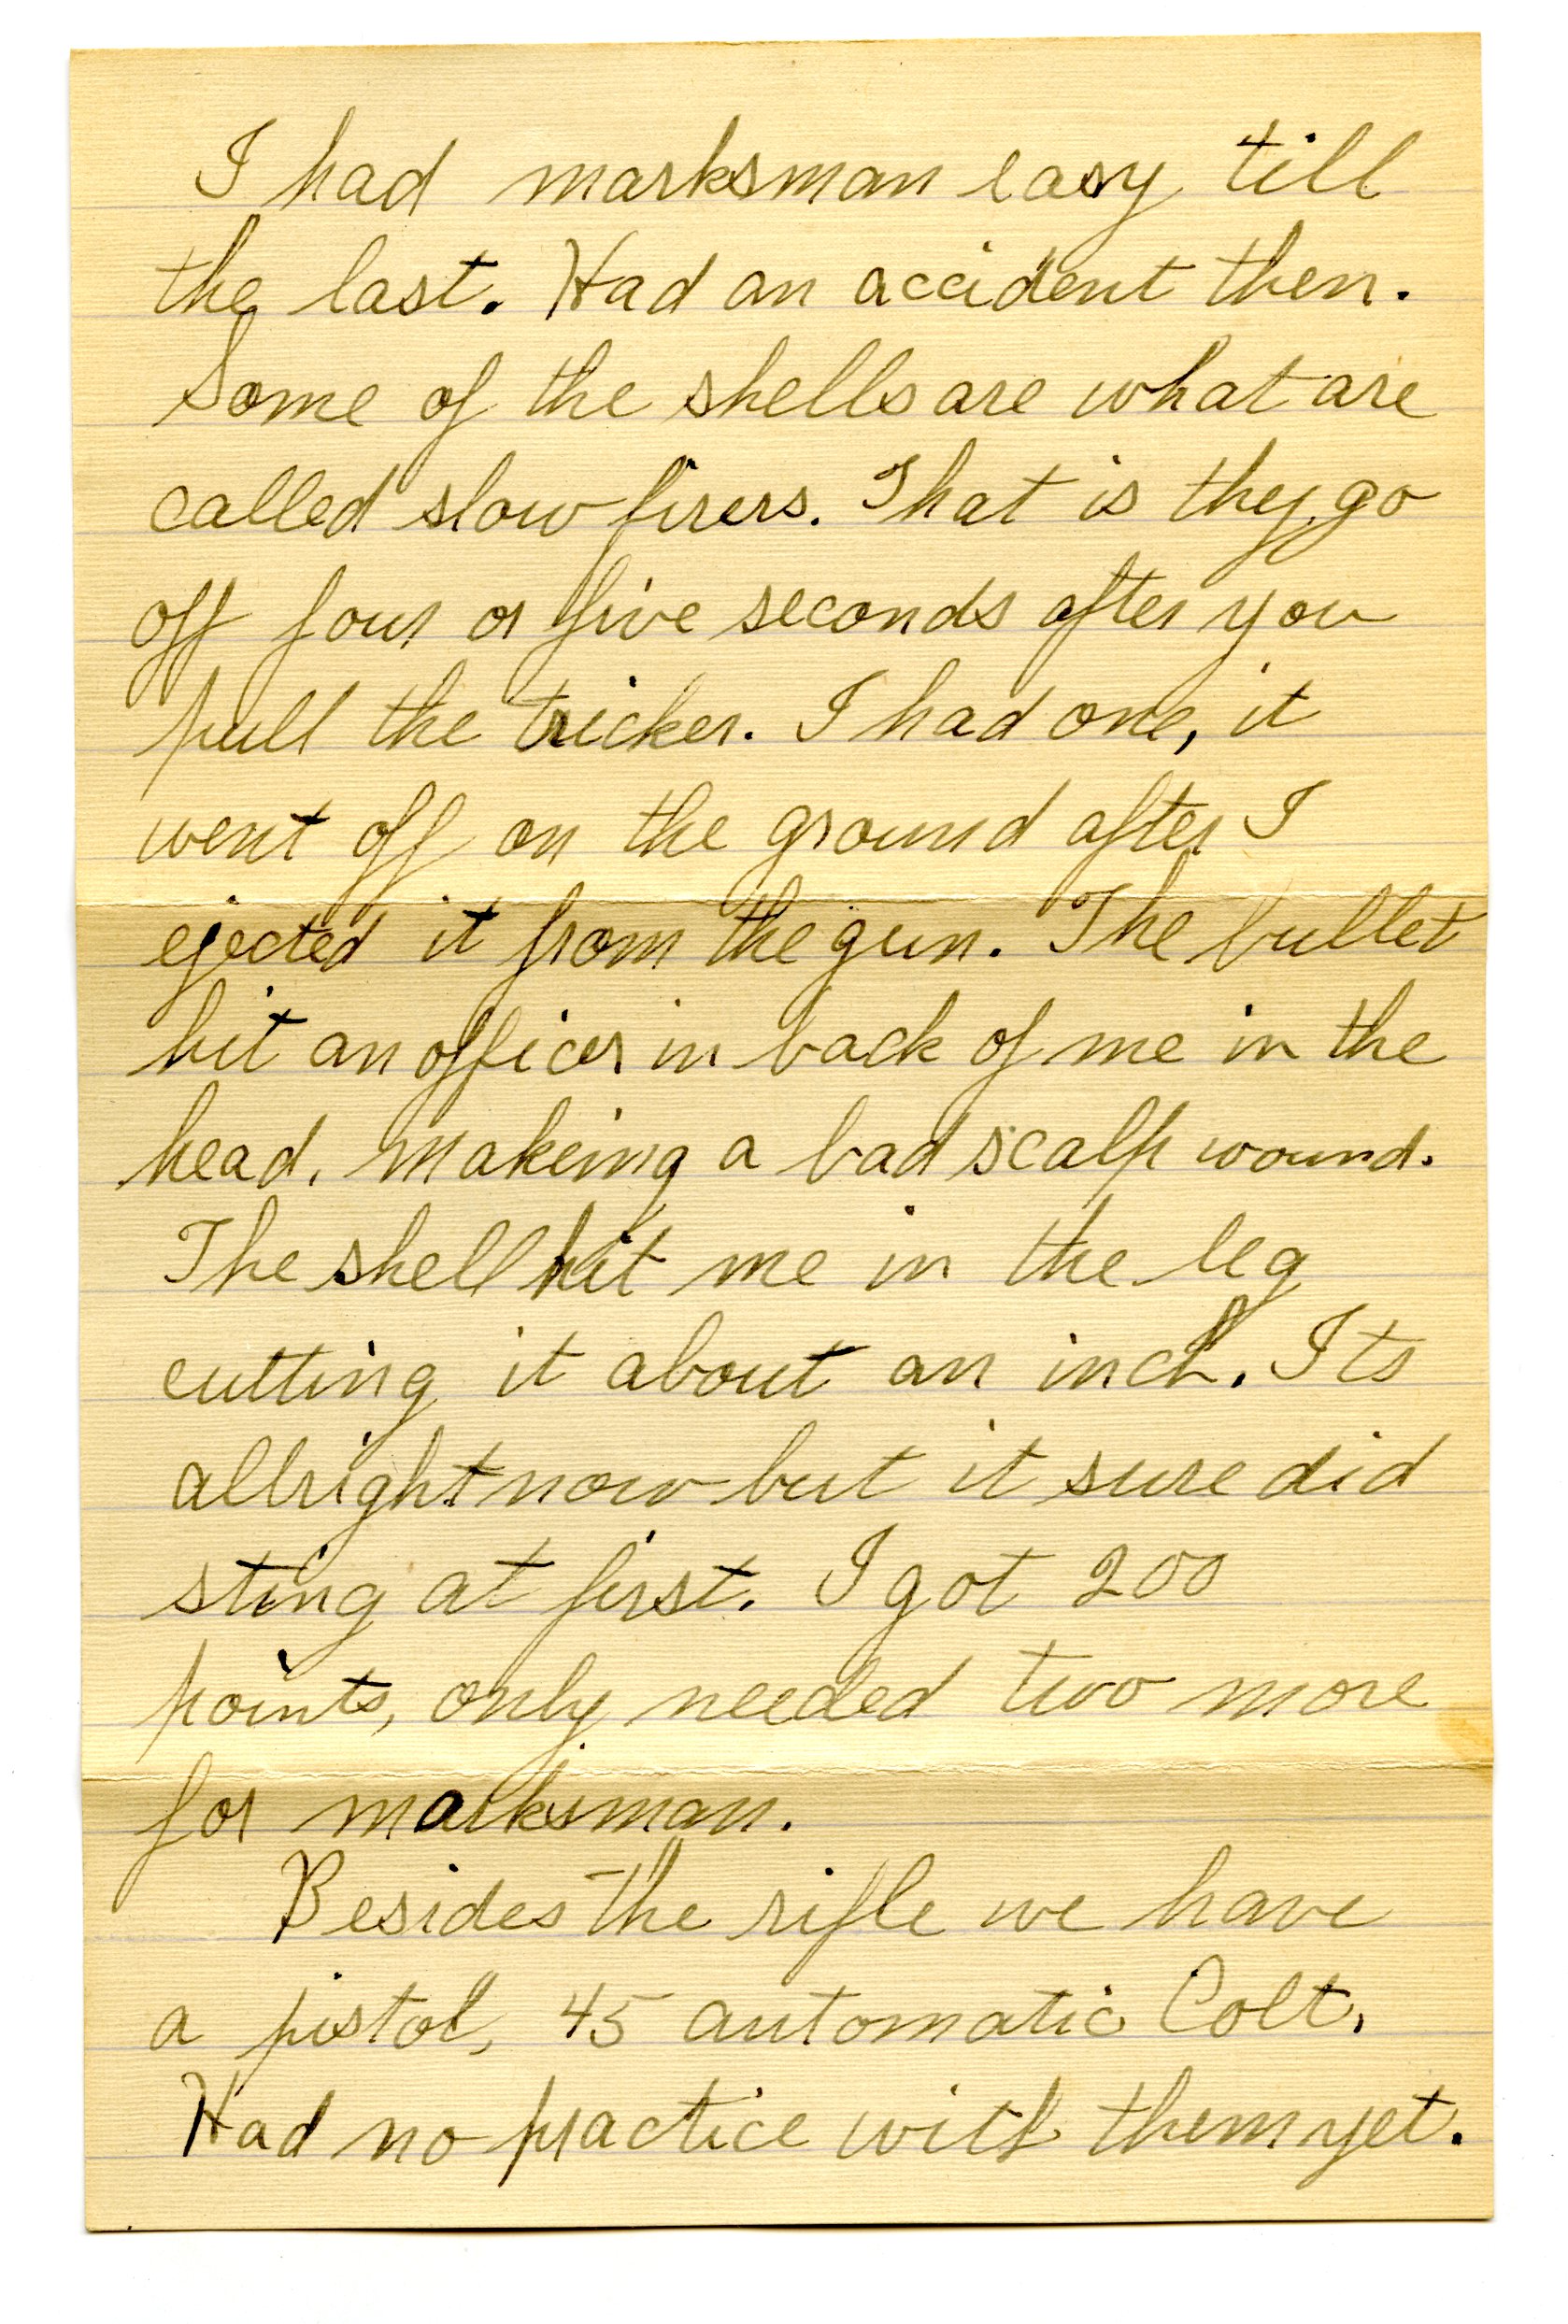 I had marksman easy till
the last. Had an accident then.
Some of the shells are what are
called slow firers. That is they go
off four or five seconds after you
pull the tricker. I had one, it
went off on the ground after I
ejected it from the gun. The bullet
hit an officer in back of me in the
head, makeing a bad scalp wound.
The shell hit me in the leg
cutting it about an inch. Its
allright now but it sure did
sting at first. I got 200
points, only needed two more
for marksman.
Besides the rifle we have
a pistol, 45 automatic Colt.
Had no practice with them yet.